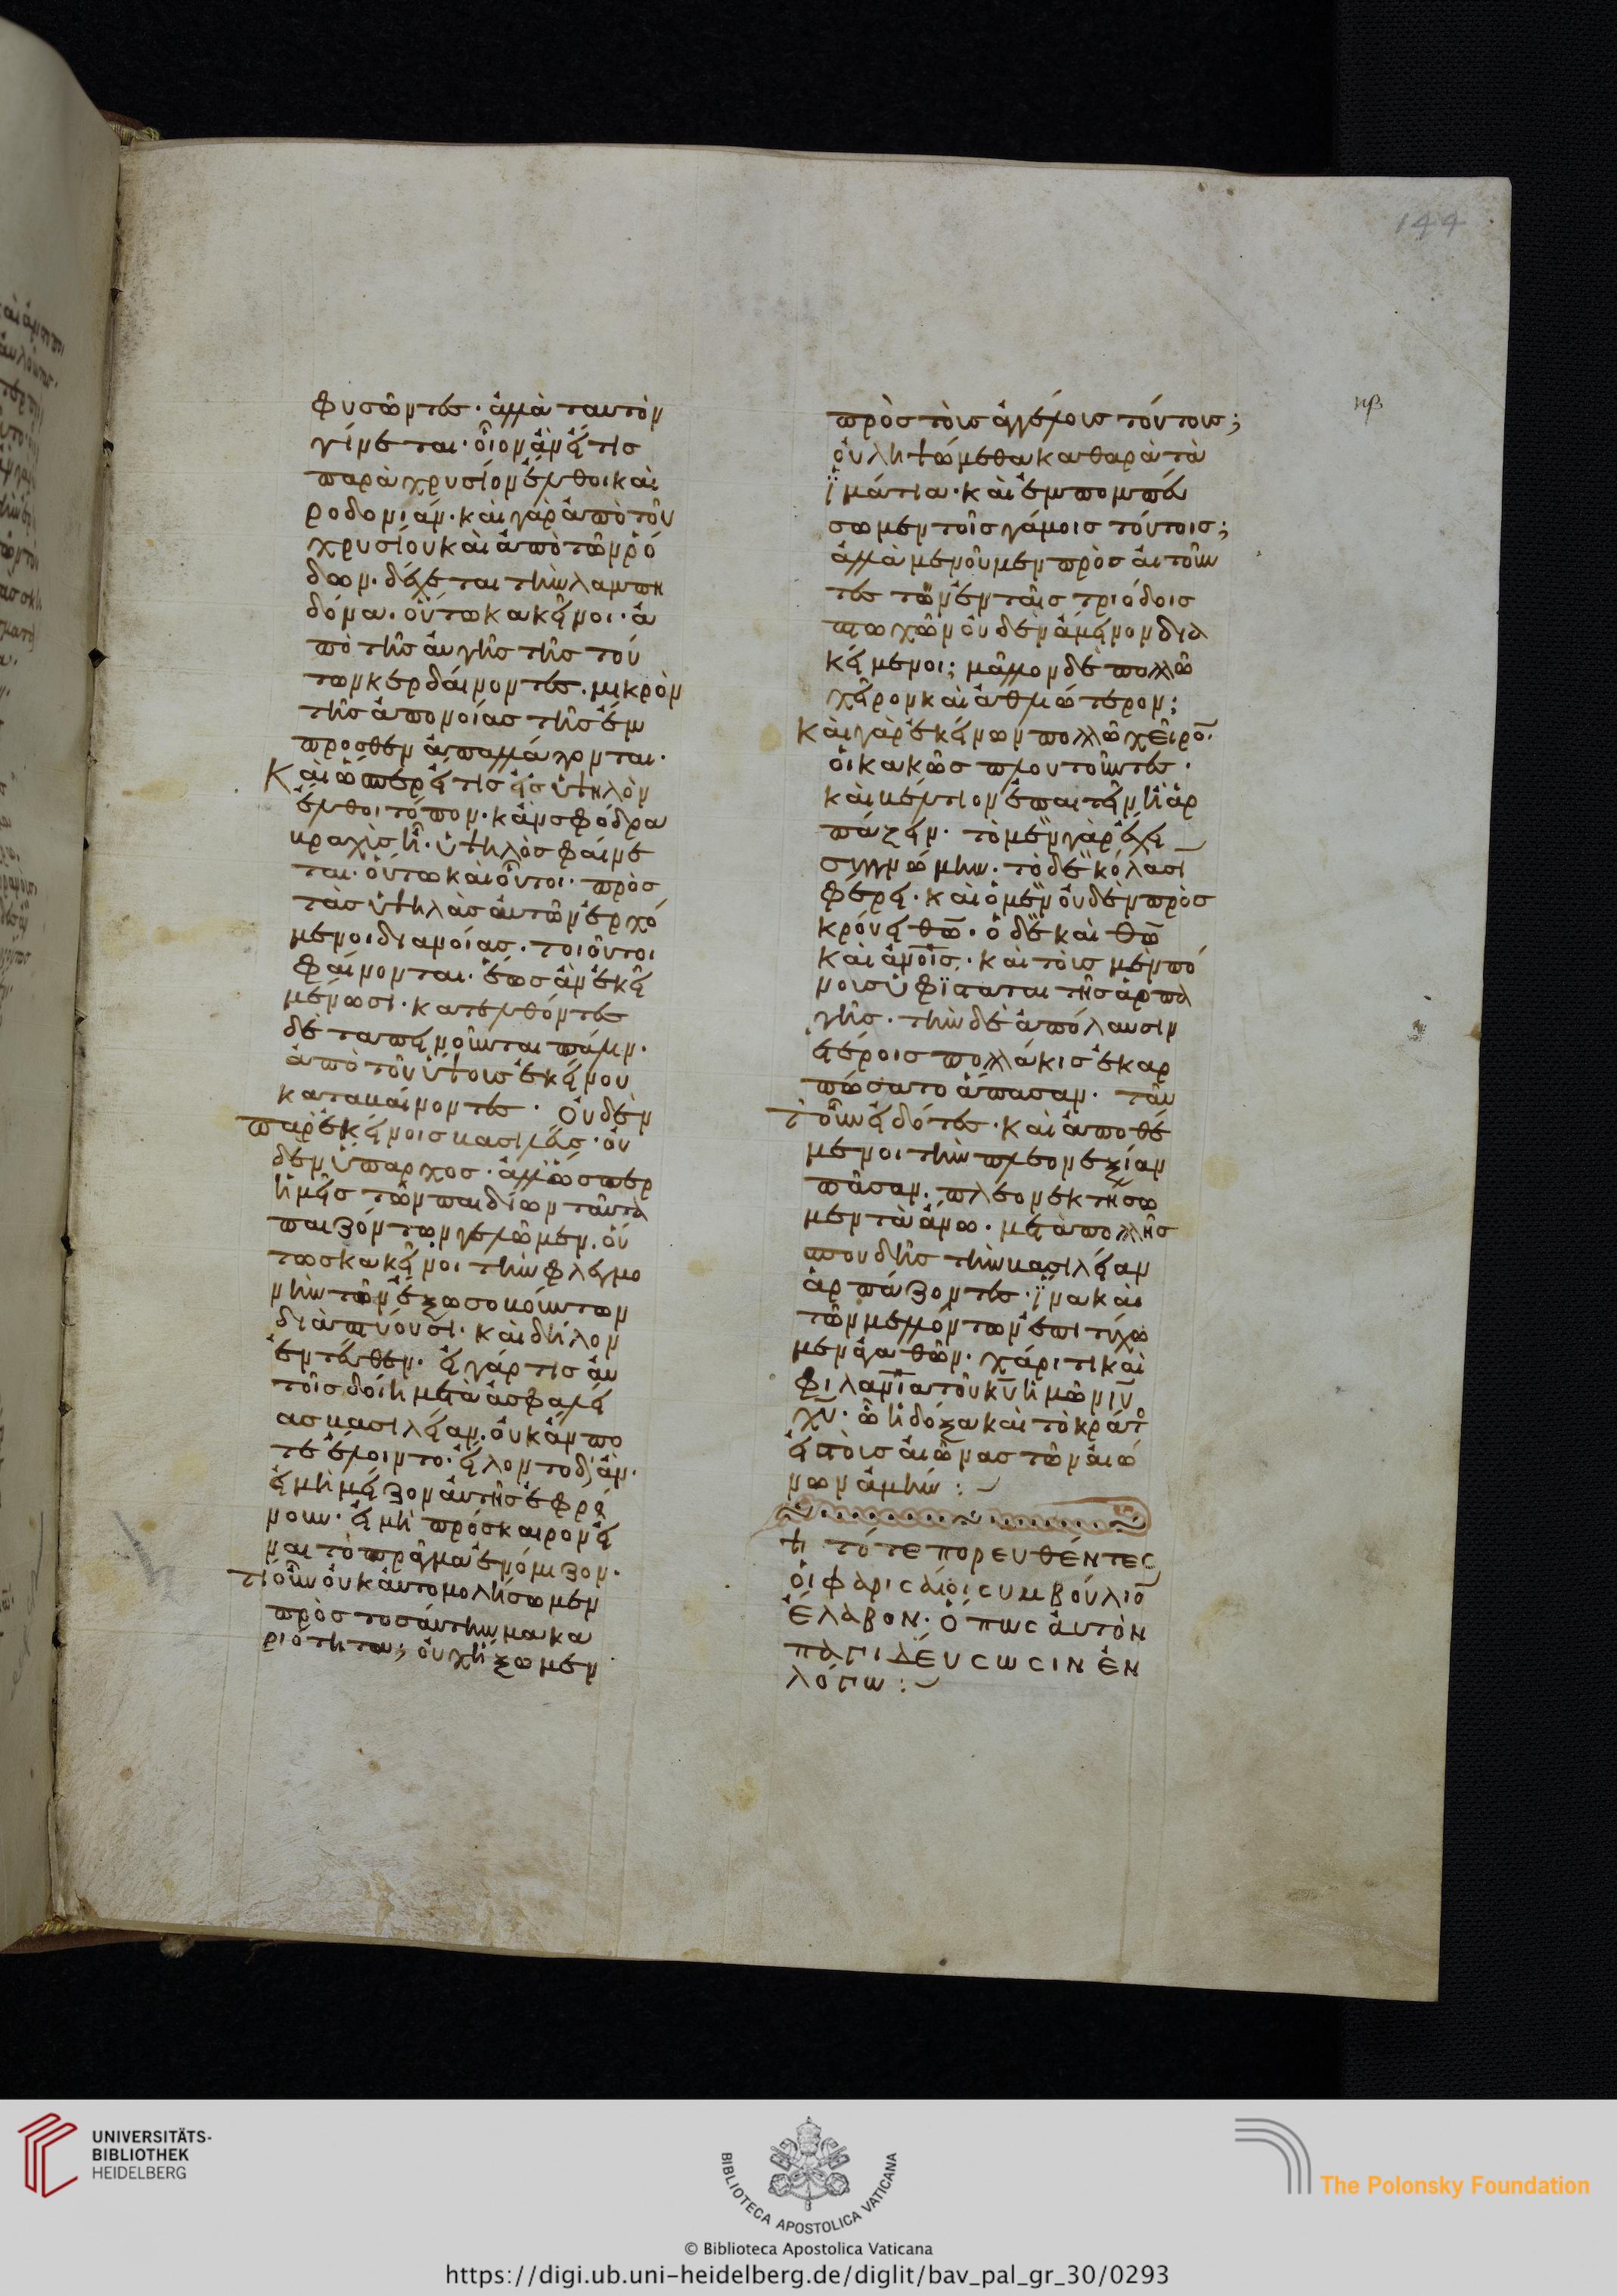 144
φυσῶντες· ἀλλὰ ταυτὸν
γίνεται· οἷον ἂν εἴ τις
παρὰ χρυσίον ἔλθοι καὶ
ροδονιάν· καὶ γὰρ ἀπὸ τοῦ
χρυσίου καὶ ἀπὸ τῶν ρό
δων· δέχεται τὴν λαμπη
δόνα· οὕτω κακεῖνοι· ἀ
πὸ τῆς αὐγῆς τῆς τού
των κερδαίνοντες. μικρὸν
τῆς ἀπονοίας τῆς ἔμ
προσθεν ἀπαλλάγονται·
Καὶ ὥσπερ εἴ τις εἰς ὑψηλὸν
ἔλθοι τόπον· κἂν σφόδρα
βραχὺς ᾖ· ὑψηλὸς φαίνε
ται· οὕτω καὶ οὗτοι· πρὸς
τὰς ὑψηλὰς αὐτῶν ἐρχό
μενοι διανοίας· τοιοῦτοι
φαίνονται· ἕως ἂν ἐκεῖ
μένωσι· κατελθόντες
δὲ ταπεινοῦνται πάλιν·
ἀπὸ τοῦ ὕψους ἐκείνου
καταβαίνοντες· Οὐδὲν
παρ' ἐκείνοις βασιλεύς· οὐ
δὲν ὕπαρχος· ἀλλ' ὥσπερ
ἡμεῖς τῶν παιδίων ταῦτα
παιζόντων γελῶμεν. οὕ
τως κακεῖνοι τὴν φλεγμο
νὴν τῶν ἔξω σοβούντων
διαπτύουσι· καὶ δῆλον
ἐντεῦθεν· εἰ γάρ τις αὐ
τοῖς δοίη μετὰ ἀσφαλεί
ας βασιλείαν· οὐκ ἄν πο
τε ἕλοιντο· εἵλοντο δ' ἄν·
εἰ μὴ μεῖζον αὐτῆς ἐφρό
νουν· εἰ μὴ πρόσκαιρον εἶ
ναι τὸ πρᾶγμα ἐνόμιζον·
Τί οὖν οὐκ αὐτομολήσωμεν
πρὸς τοσαύτην μακα
ριότητα; οὐχ ἥξωμεν
πρὸς τοὺς ἀγγέλους τούτους;
οὐ ληψώμεθα καθαρὰ τὰ
ἱμάτια· καὶ ἐμπομπεύ
σωμεν τοῖς γάμοις τούτοις;
ἀλλὰ μενοῦμεν προσαιτοῦν
τες τῶν ἐν ταῖς τριόδοις
πτωχῶν οὐδὲν ἄμεινον δια
κείμενοι; μᾶλλον δὲ πολλῶ
χεῖρον καὶ ἀθλιώτερον;
Καὶ γὰρ ἐκείνων πολλῶ χεῖρον
οἱ κακῶς πλουτοῦντες·
καὶ βέλτιον ἐπαιτεῖν ἢ ἁρ
πάζειν· τὸ μὲν γὰρ ἔχει
συγγνώμην· τὸ δὲ κόλασιν
φέρει· καὶ ὁ μὲν οὐδὲν προς
κρούει θῶ· ὁ δὲ καὶ θῶ
καὶ ἀνοις· καὶ τοὺς μὲν πό
νους ὑφίσταται τῆς ἁρπα
γῆς· τὴν δὲ ἀπόλαυσιν
ἕτεροις πολλάκις ἐκαρ
πώσατο ἅπασαν· ταῦ
τ' οὖν εἰδότες· καὶ ἀποθέ
μενοι τὴν πλεονεξίαν
πᾶσαν. πλεονεκτήσω
μεν τὰ ἄνω· μετὰ πολλῆς
σπουδῆς τὴν βασιλείαν
ἁρπάζοντες· ἵνα καὶ
τῶν μελλόντων ἐπιτύχω
μεν ἀγαθῶν· χάριτι καὶ
φιλανια τοῦ κυ ἡμῶν ιυ
χυ· ᾧ ἡ δόξα καὶ τὸ κράτος
εἰς τοὺς αἰῶνας τῶν αἰώ
νων ἀμήν:
τότε πορευθέντες
οἱ φαρισαῖοι συμβούλιον
ἔλαβον· ὅπως αὐτὸν
παγιδεύσωσιν ἐν
λόγω:
UNIVERSITÄTS-
BIBLIOTHEK
HEIDELBERG
BIBLIOTECA APOSTOLICA VATICANA
The Polonsky Foundation
© Biblioteca Apostolica Vaticana
https://digi.ub.uni-heidelberg.de/diglit/bav_pal_gr_30/0293